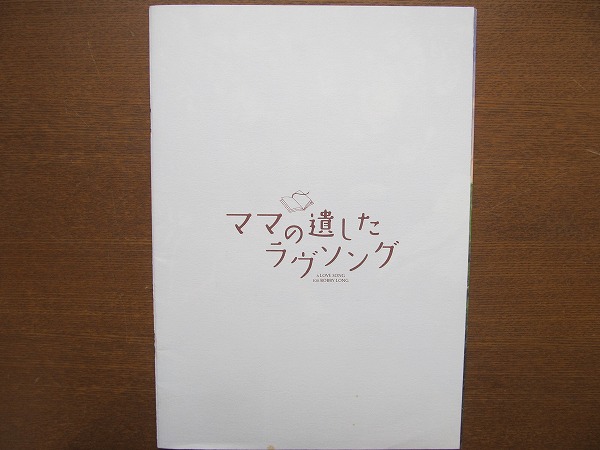 ママの遺した
ラヴソング
A LOVE SONG
FOR BOBBY LONG